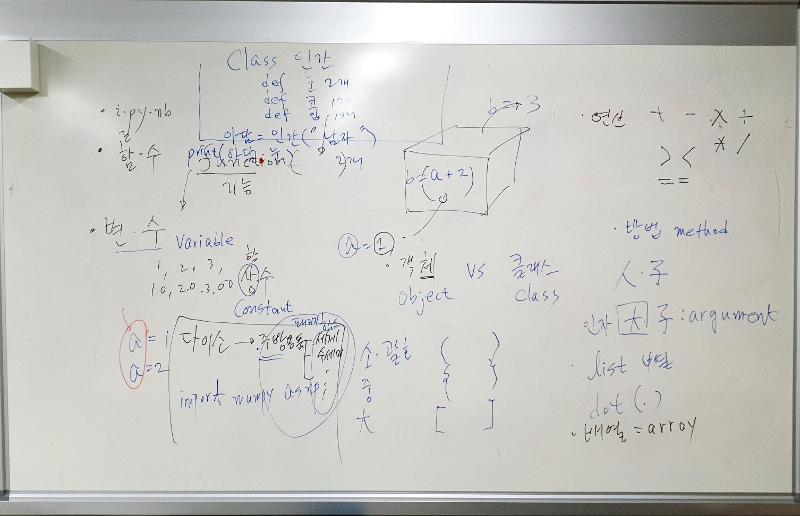 Class 인간
def 눈 2개
def 코 1개
def 입 1개
아담 = 인간("남자")
print(아담.눈)
2개
기능
· i.py.nb
· 함·수
· 변·수 Variable
1, 2, 3,
10, 20, 3.00
항
상수
Constant
a = 1
a = 2
다이소 → 주방용품
세제
수세미
import numpy as np
b ⇒ 3
b = (a + 2)
a = 1
· 객체 vs 클래스
object class
소·괄호 ( )
중 { }
大 [ ]
· 연산 + - × ÷
* /
> <
==
· 방법 method
人·子
인자 大·子 : argument
· list 배열
dot (.)
· 배열 = array